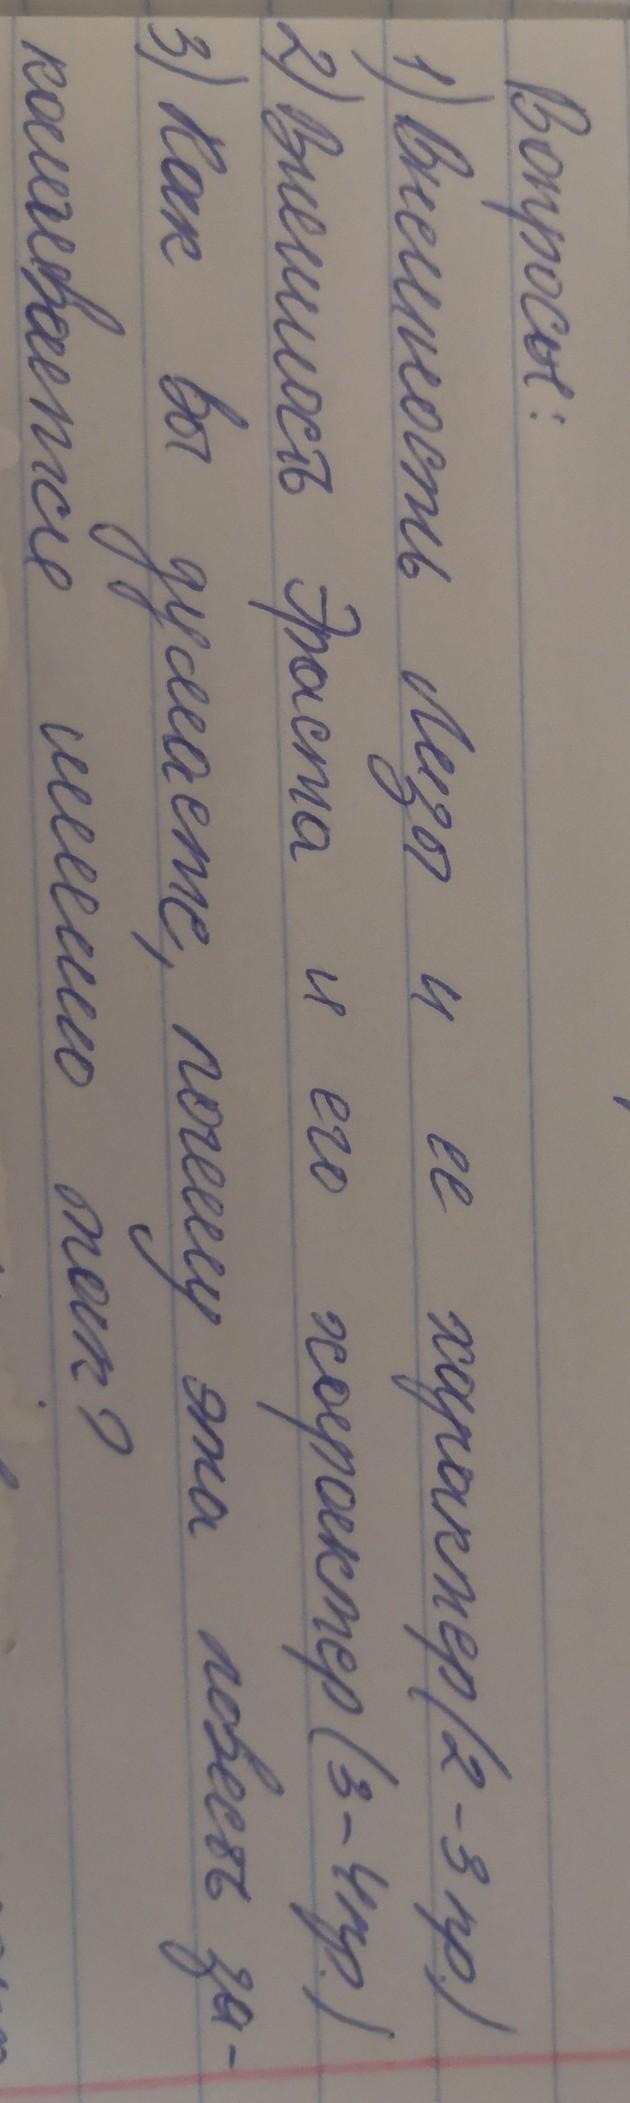 Вопросы:
1) Внешность Лизы и ее характер (2-3 пр.)
2) Внешность Эраста и его характер (3-4 пр.)
3) Как вы думаете, почему эта повесть за-
канчивается именно так?